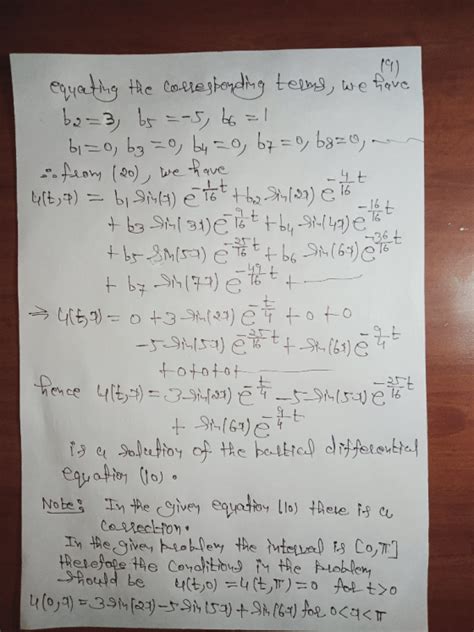 (9)
equating the corresponding terms, we have
b2=3, b5=-5, b6=1
b1=0, b3=0, b4=0, b7=0, b8=0, ---
∴ from (20), we have
u(t,x) = b1 sin(x) e^{-1/16 t} + b2 sin(2x) e^{-4/16 t}
+ b3 sin(3x) e^{-9/16 t} + b4 sin(4x) e^{-16/16 t}
+ b5 sin(5x) e^{-25/16 t} + b6 sin(6x) e^{-36/16 t}
+ b7 sin(7x) e^{-49/16 t} + ---
⇒ u(t,x) = 0 + 3 sin(2x) e^{-t/4} + 0 + 0
-5 sin(5x) e^{-25/16 t} + sin(6x) e^{-9/4 t}
+0+0+0+ ---
hence u(t,x) = 3 sin(2x) e^{-t/4} - 5 sin(5x) e^{-25/16 t}
+ sin(6x) e^{-9/4 t}
is a solution of the partial differential
equation (10).
Note: In the given equation (10) there is a
correction.
In the given problem the interval is [0,π]
therefore the conditions in the problem
should be u(t,0) = u(t,π) = 0 for t>0
u(0,x) = 3 sin(2x) - 5 sin(5x) + sin(6x) for 0<x<π